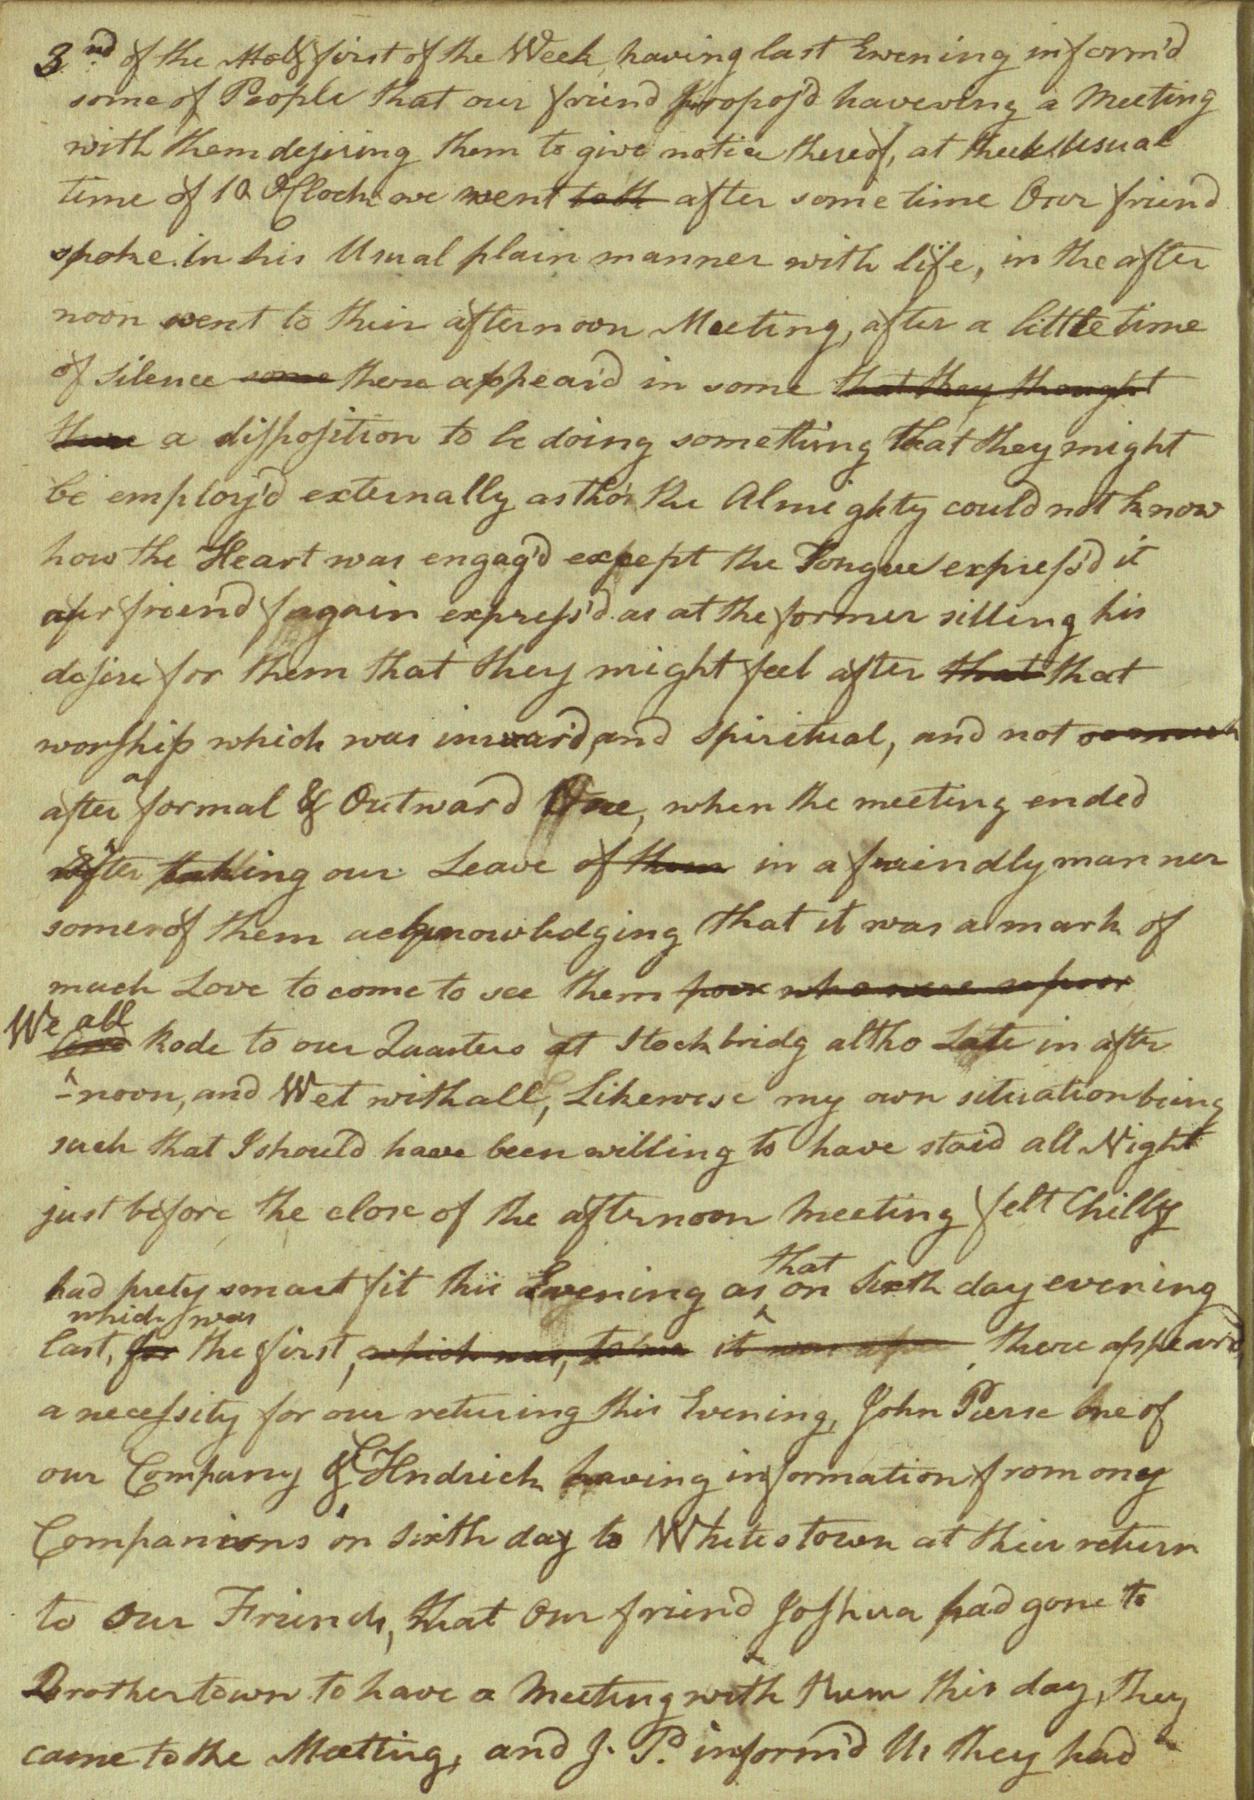 3nd of the Mo & first of the Week, having last Evening inform'd
some of People that our friend propos'd haveving a Meeting
with them desiring them to give notice thereof, at their Usual
time of 10 OClock we went after some time Our friend
spoke in his Usual plain manner with life, in the after
noon went to their afternoon Meeting, after a little time
of silence some there appear'd in some that they thought
there a disposition to be doing something that they might
be employ'd externally as tho' the Almighty could not know
how the Heart was engag'd except the Tongue express'd it
our friend again express'd as at the former sitting his
desire for them that they might feel after that that
worship which was inward, and spiritual, and not so much
after a formal & Outward One, when the meeting ended
After taking our Leave of them in a friendly manner
some of them acknowledging that it was a mark of
much Love to come to see them poor who were so poor
We all Rode to our Quarters at Stockbridg altho Late in after
-noon, and Wet withall, Likewise my own situation being
such that I should have been willing to have staid all Night
just before the close of the afternoon Meeting felt Chilly
had prety smart fit this Evening as that on Sixth day evening
last, for which was the first, which was, to me it was there appear'd
a necessity for our returing this Evening, John Pierce One of
our Company & Hndrick having information from ony
Companions on sixth day to Whitestown at their return
to Our Friends, that Our friend Joshua had gone to
Brothertown to have a Meeting with them this day, they
came to the Meeting, and J. P. inform'd Us they had